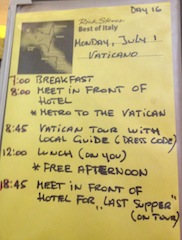 DAY 16
Rick Steves
Best of Italy
MONDAY, JULY 1
VATICANO
7:00 BREAKFAST
8:00 MEET IN FRONT OF
HOTEL
* METRO TO THE VATICAN
8:45 VATICAN TOUR WITH
LOCAL GUIDE (DRESS CODE)
12:00 LUNCH (ON YOU)
* FREE AFTERNOON
18:45 MEET IN FRONT OF
HOTEL FOR „LAST SUPPER"
(ON TOUR)